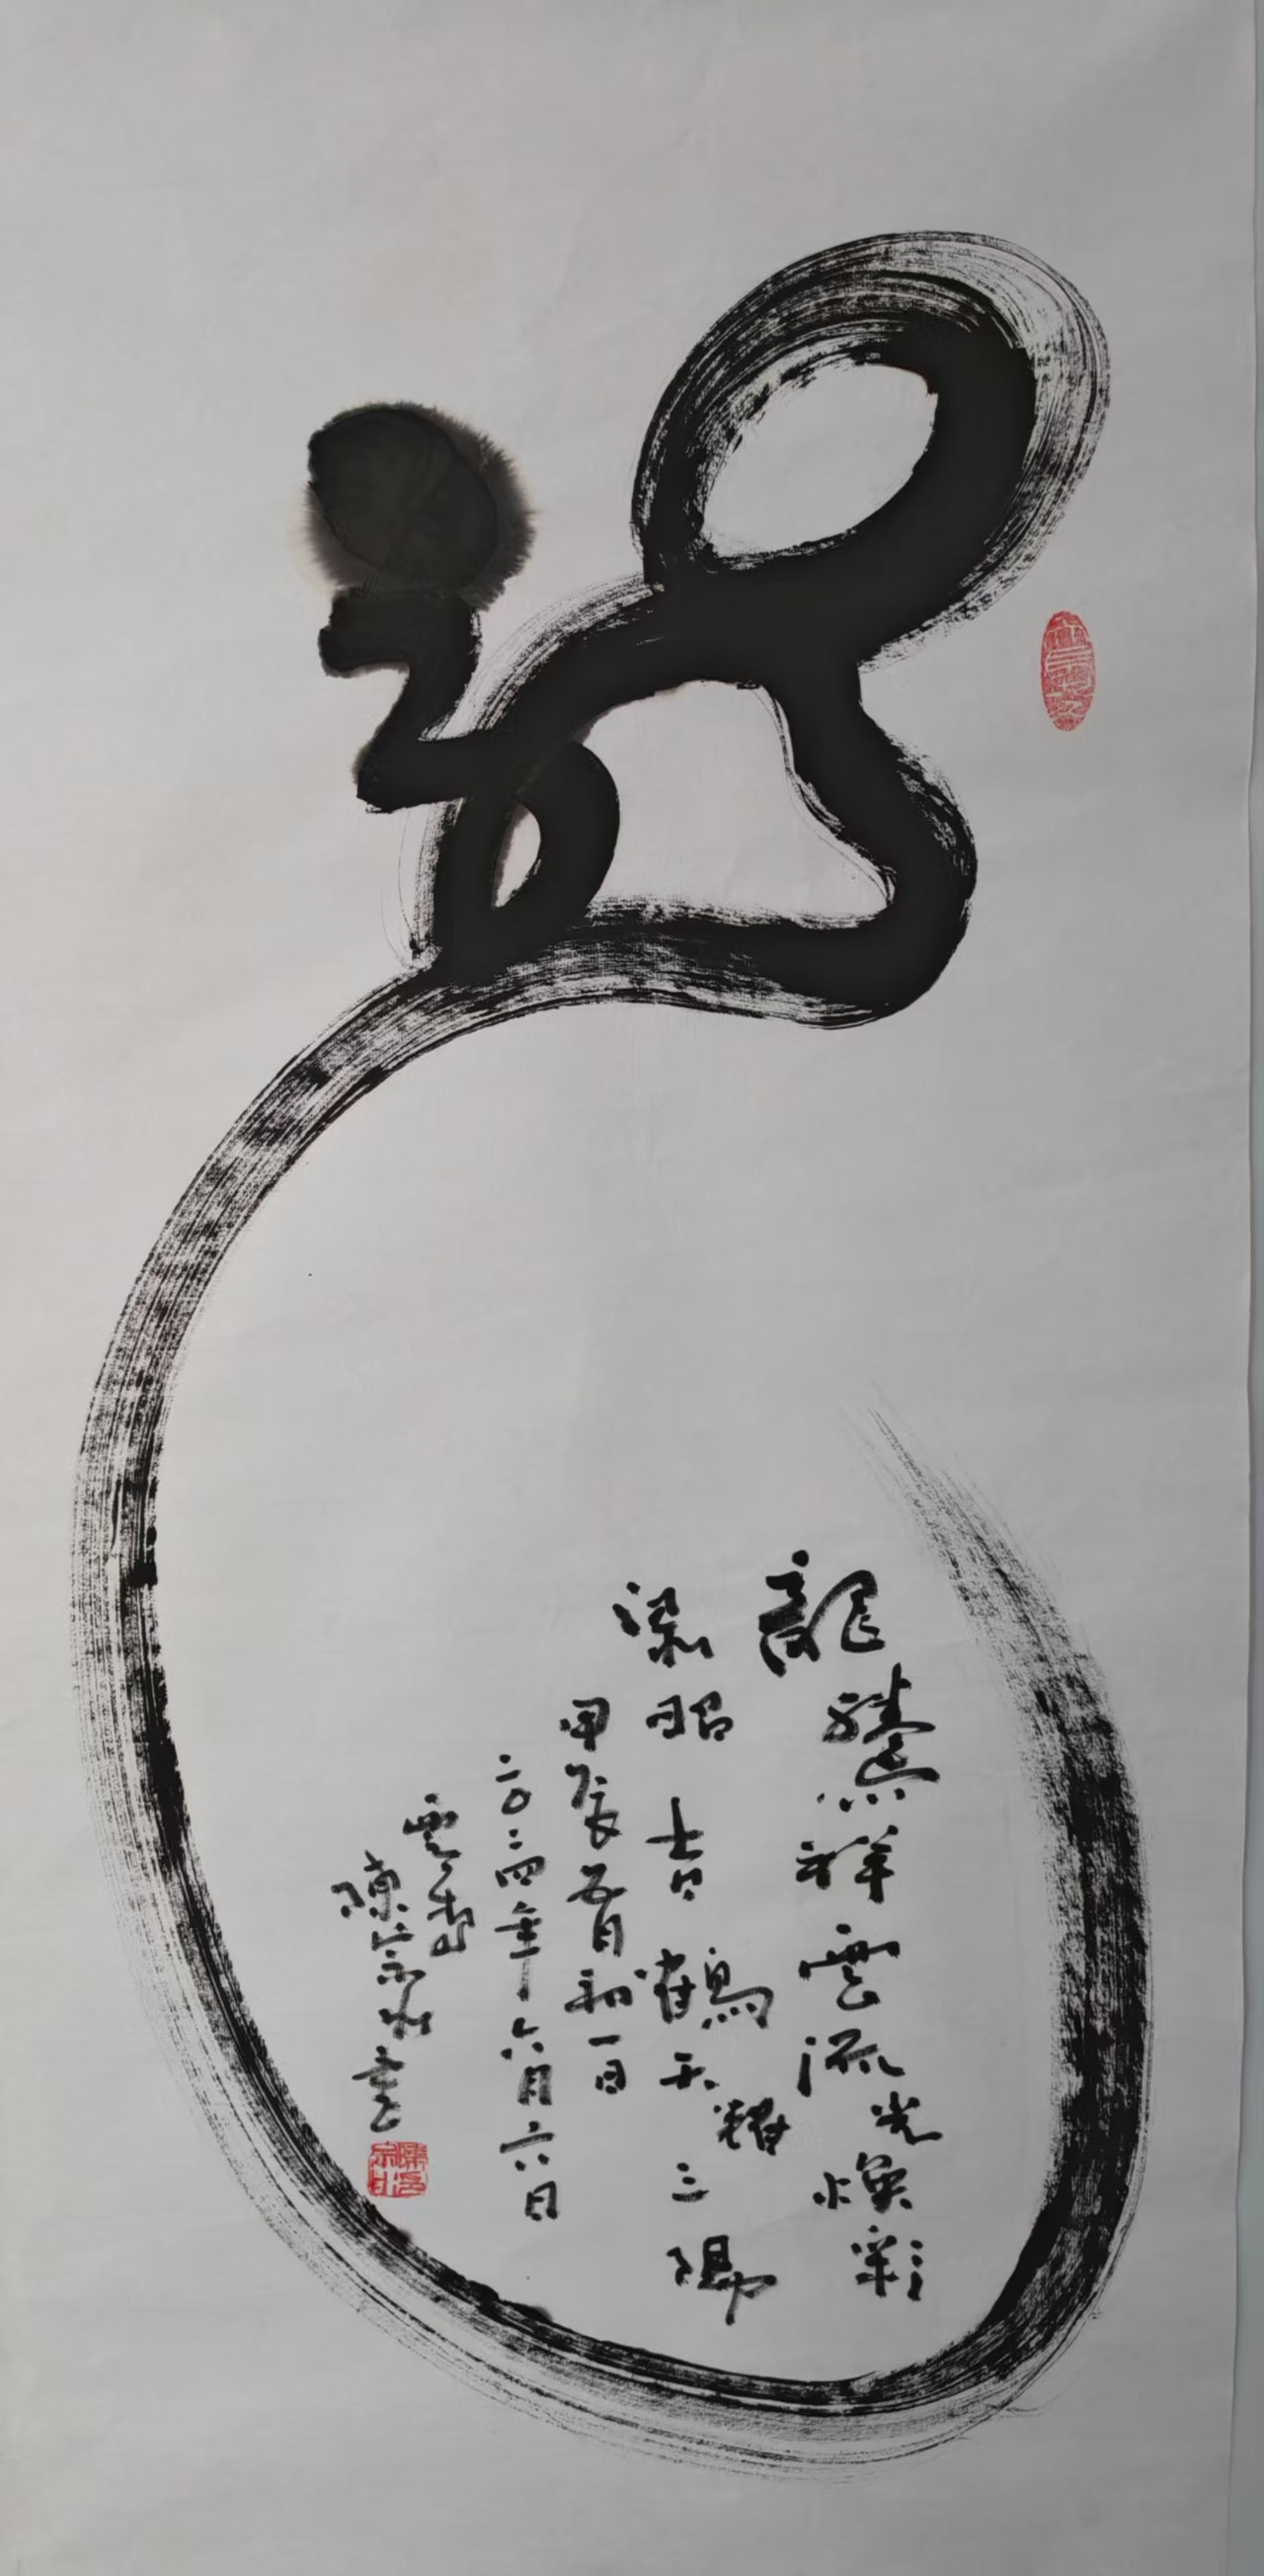 龍
龍騰祥雲流光煥彩
昭吉鶴天耀三陽
甲辰五月初一日
二〇二四年六月六日
雲
陳宗書